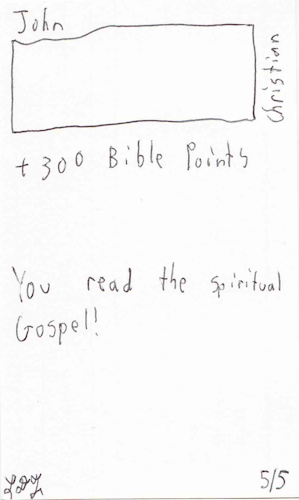 John
Christian
+300 Bible Points
You read the spiritual
Gospel!
5/5